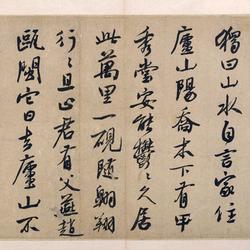 獨曰山水自言家住
廬山陽喬木下有甲
秀堂安能鬱鬱久居
此萬里一硯隨翱翔
行行且止君有父燕趙
甌閩它日去廬山不